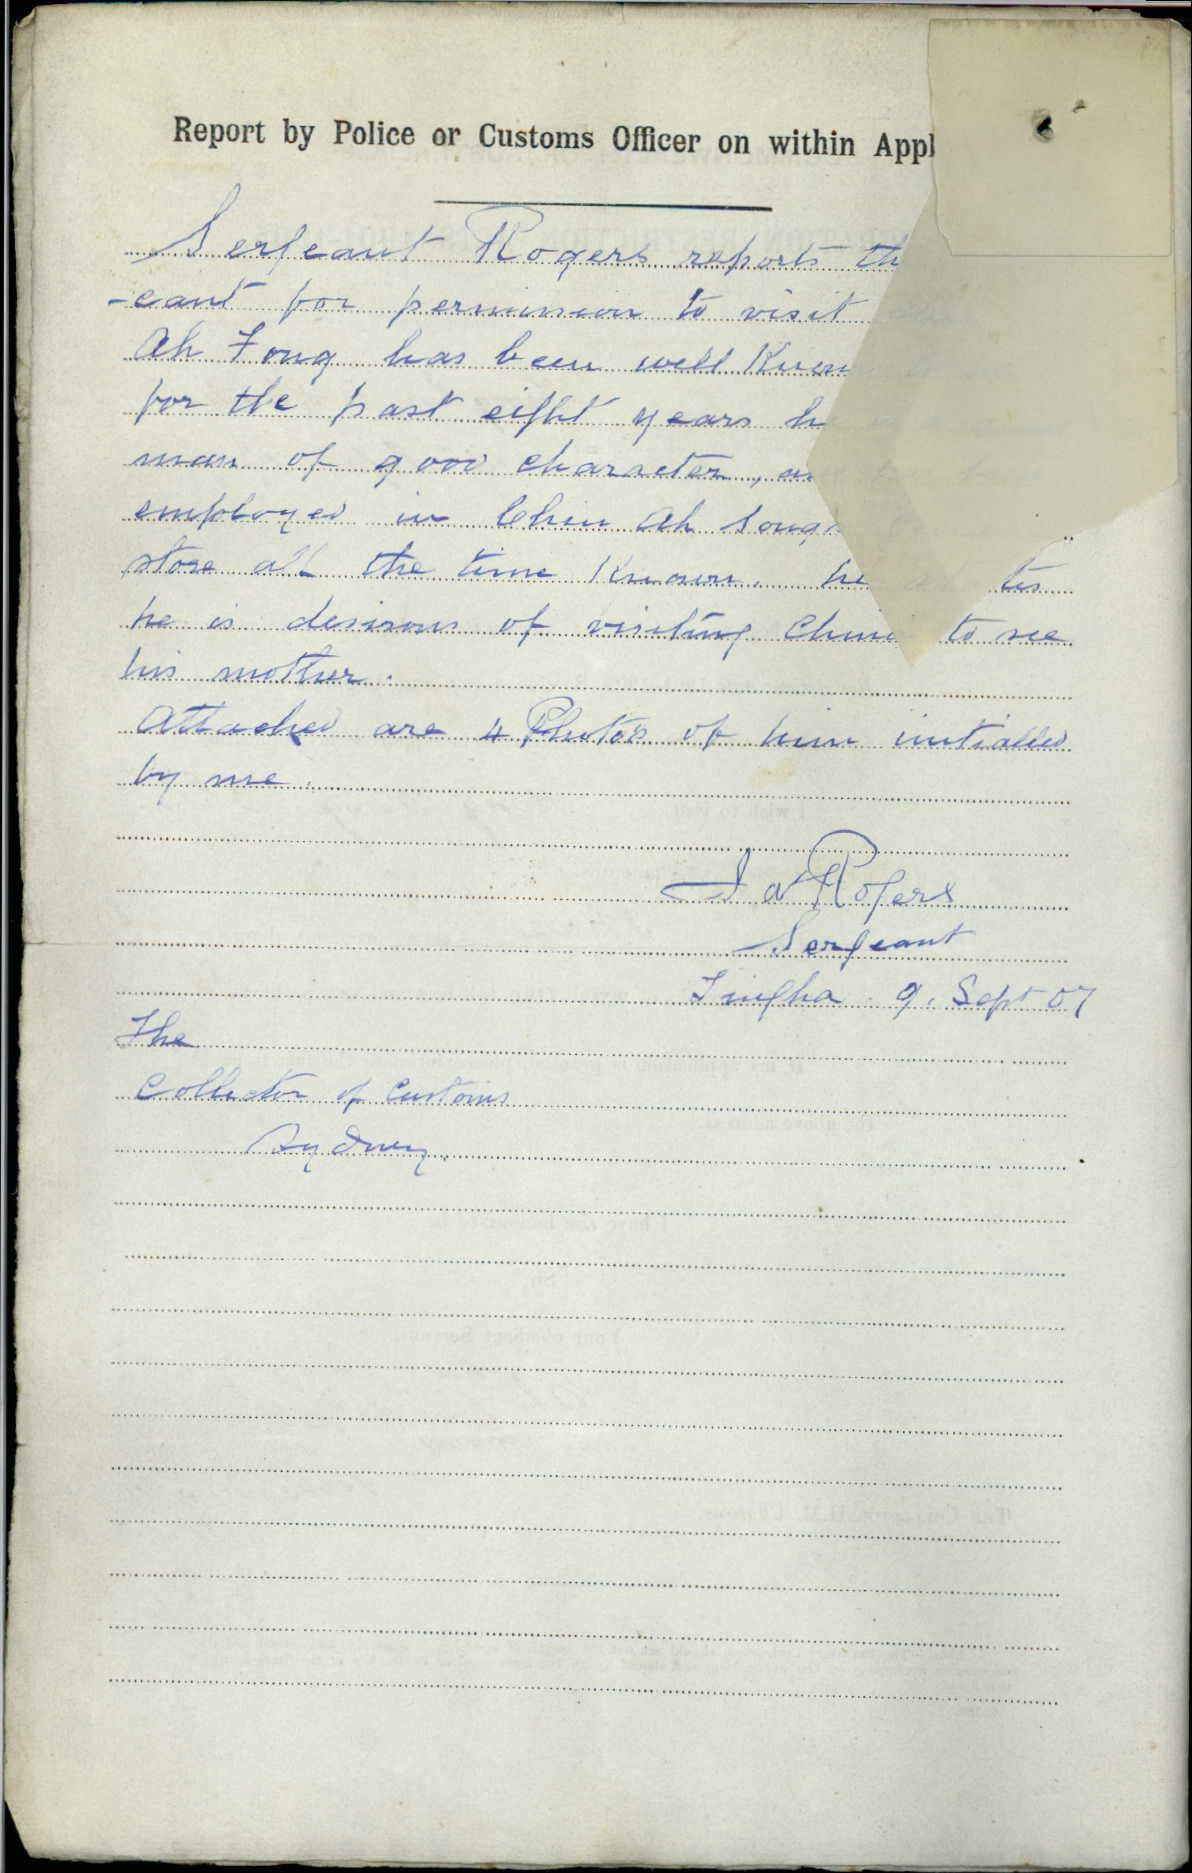 Report by Police or Customs Officer on within Appl
Sergeant Rogers reports th
-cant for permission to visit
Ah Fong has been well Known
for the past eight years h
man of good character, an
employed in Chin Ah Song
store all the time Known. he
he is desirous of visiting China to see
his mother.
Attached are 4 Photos of him initialled
by me.
Rogers
Sergeant
Tingha 9. Sept 07
The
Collector of Customs
Sydney.